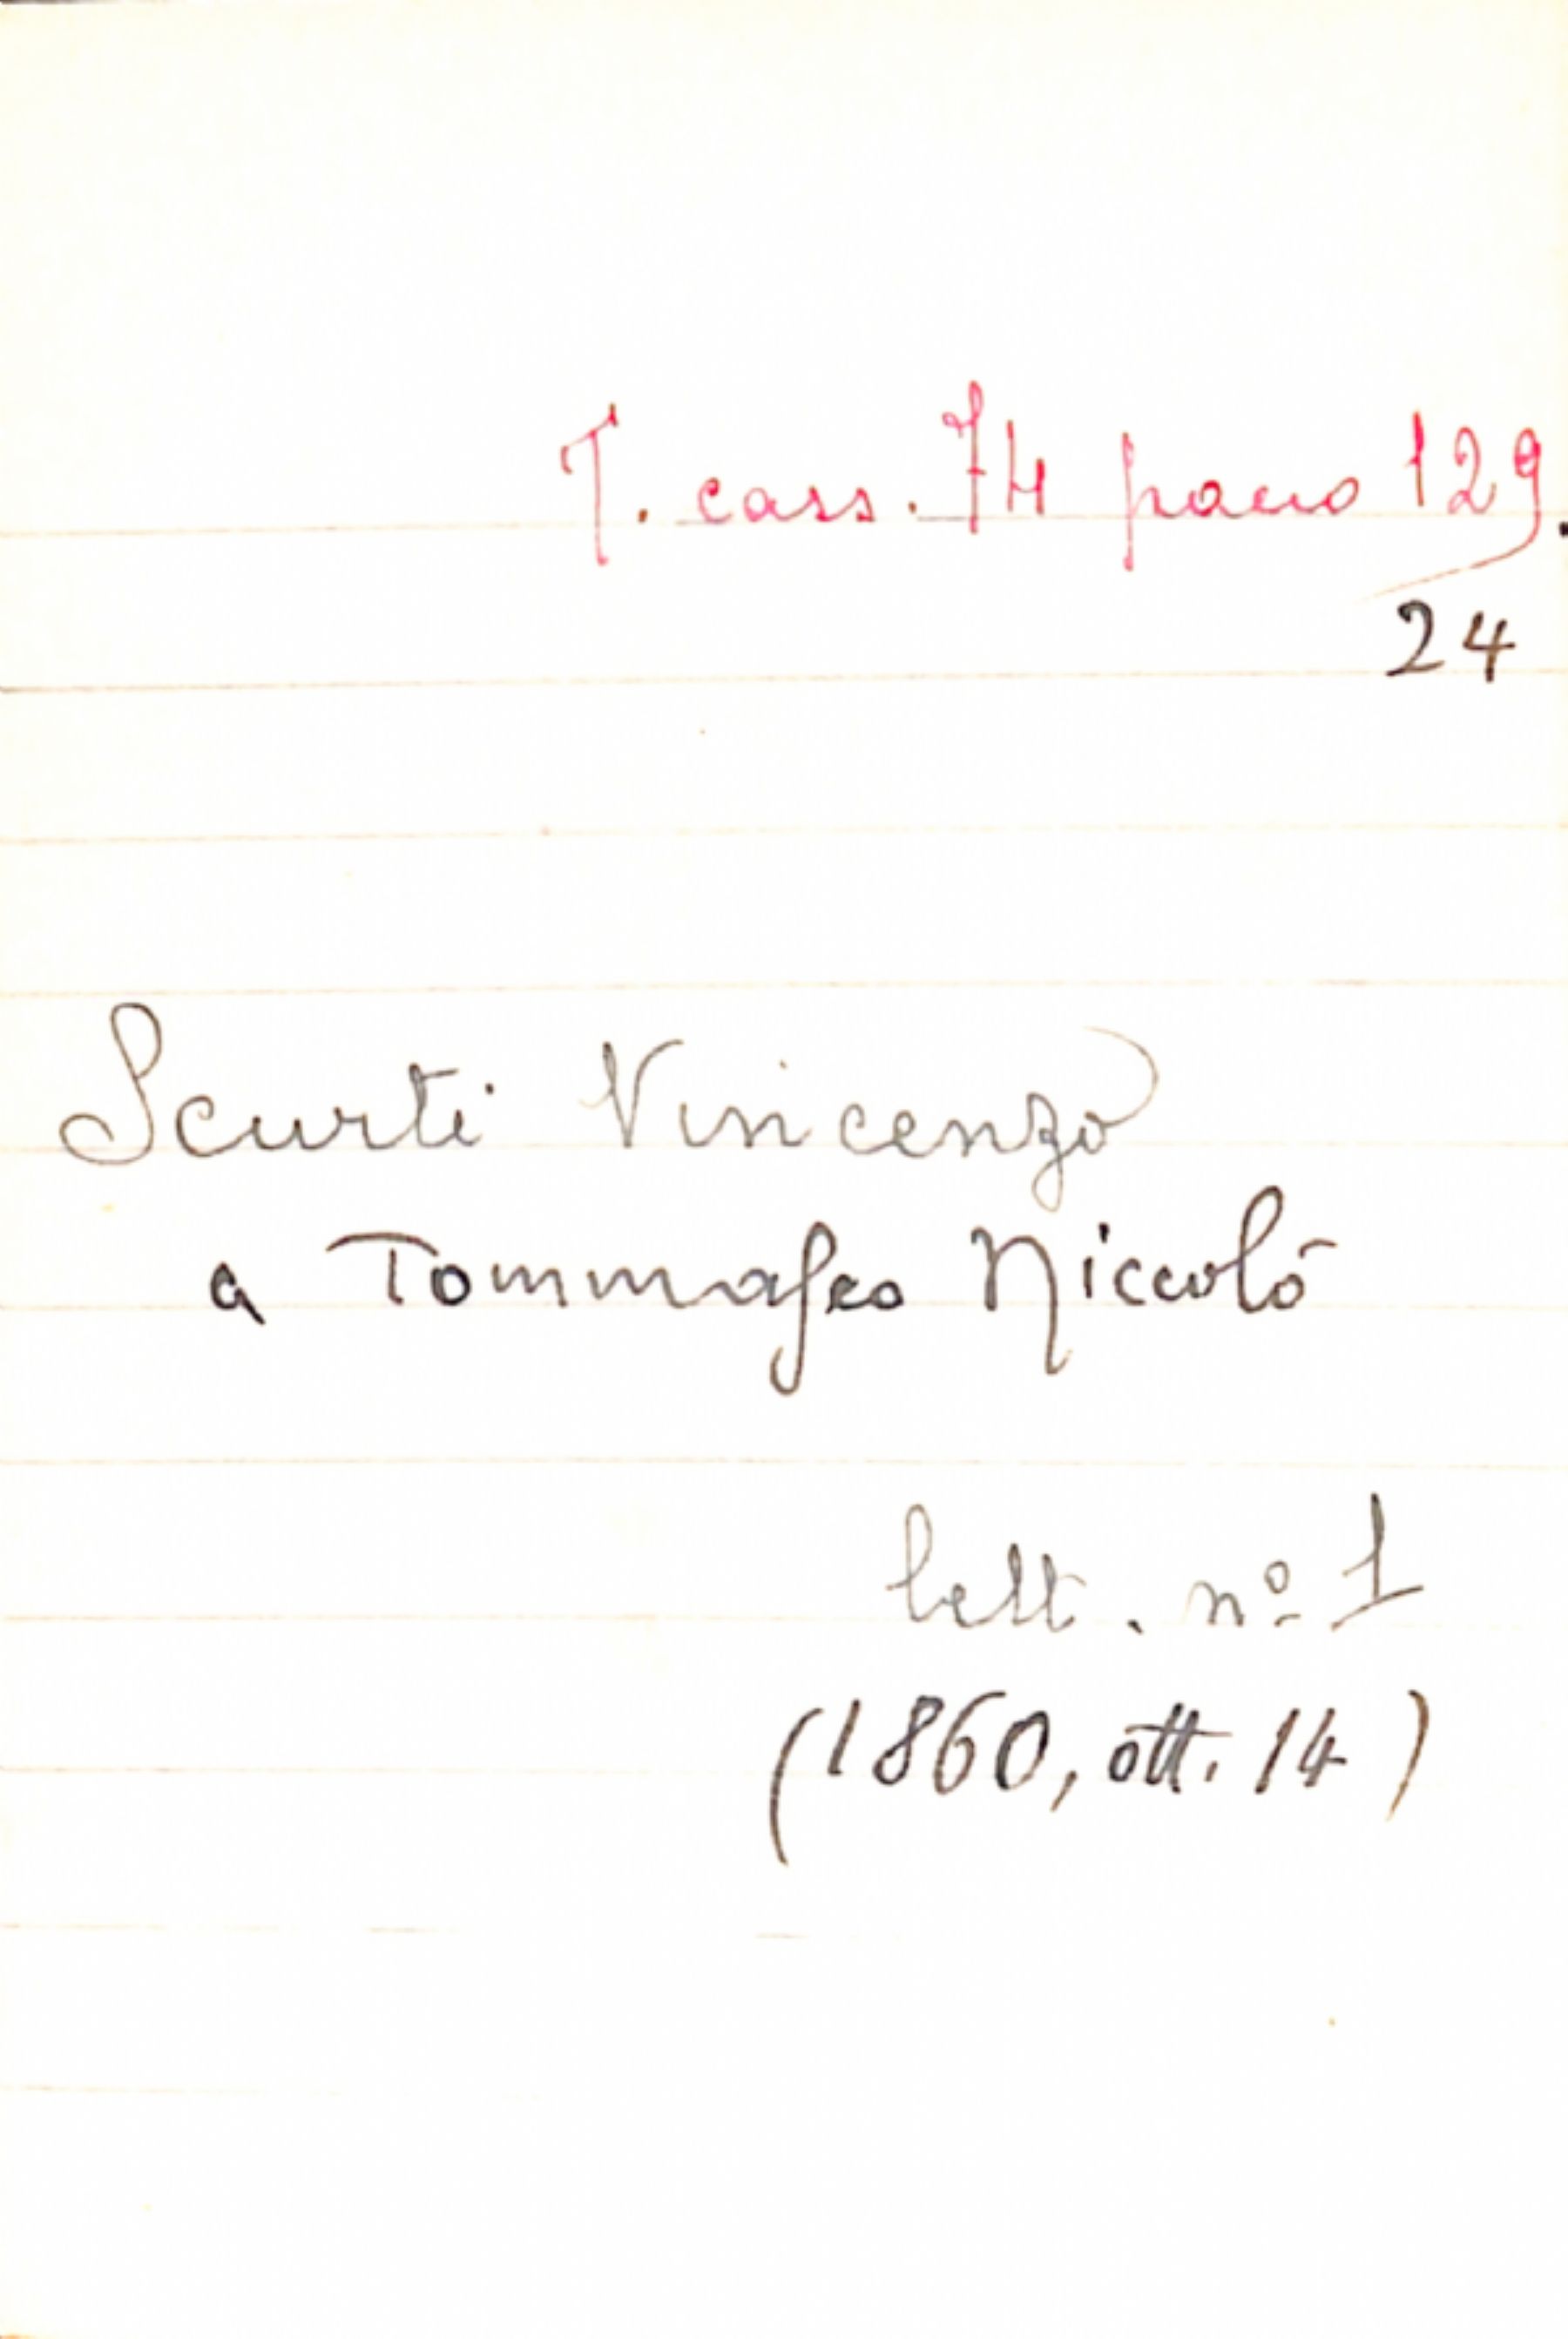 T. cass. 74 pacco 129.
24
Scurti Vincenzo
a Tommaseo Niccolò
lett. nº 1
(1860, ott. 14)